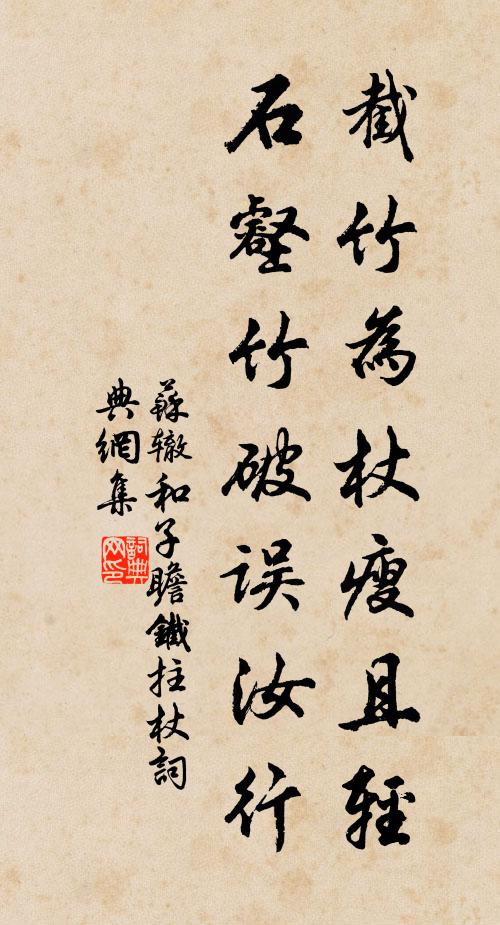 截竹為杖瘦且輕
石壑竹破误汝行
蘇辙和子瞻鐵拄杖詞
典網集
詞典网印